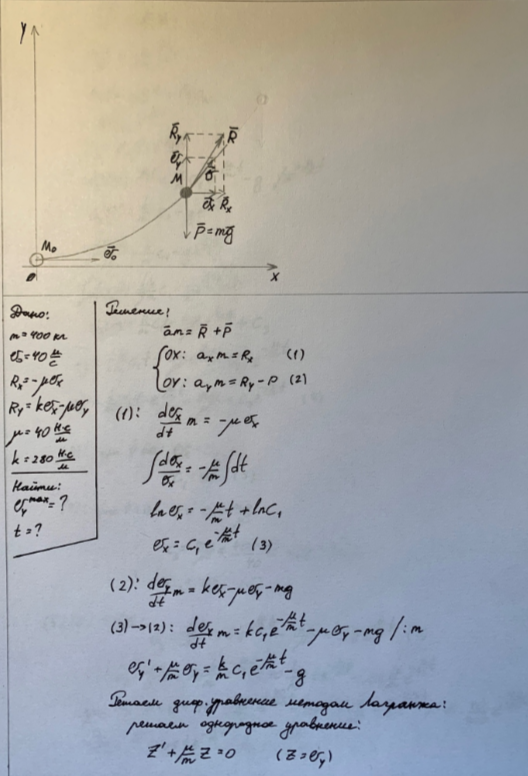 y
R̄y
R̄
ῡy
ῡ
M
ῡx R̄x
P̄=mḡ
M₀
ῡ₀
0
x
Дано:
m=400 кг
υ₀=40 м/с
Rx=-μυx
Ry=kυx-μυy
μ=40 Н·с/м
k=280 Н·с/м
Найти:
υy^max=?
t=?
Решение:
ām=R̄+P̄
{OX: axm=Rx (1)
OY: aym=Ry-P (2)
(1): dυx/dt m = -μυx
∫dυx/υx = -μ/m ∫dt
lnυx = -μ/m t + lnC₁
υx = C₁e^(-μ/m t) (3)
(2): dυy/dt m = kυx-μυy-mg
(3)→(2): dυy/dt m = kC₁e^(-μ/m t) - μυy - mg /:m
υy' + μ/m υy = k/m C₁e^(-μ/m t) - g
Решаем диф. уравнение методом Лагранжа:
решаем однородное уравнение:
Z' + μ/m Z = 0 (Z=υy)